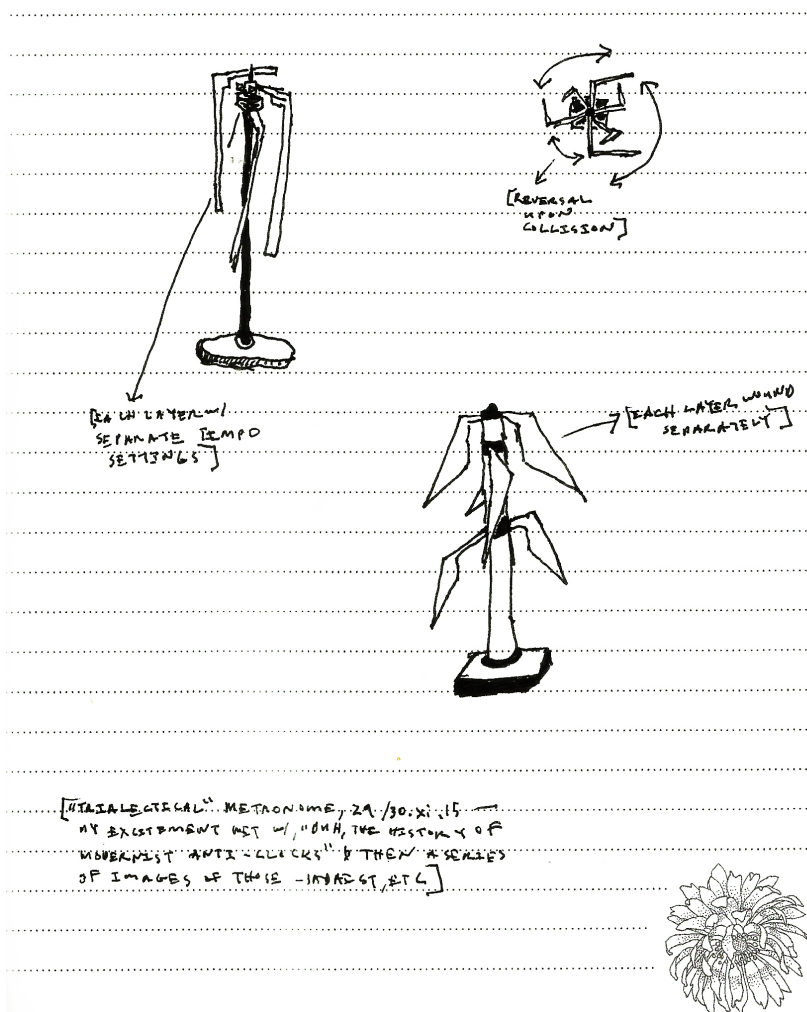 [REVERSAL
UPON
COLLISION]
[EACH LAYER W/
SEPARATE TEMPO
SETTINGS]
[EACH LAYER WOUND
SEPARATELY]
["TRIALECTICAL" METRONOME, 29/30.xi.15 —
MY EXCITEMENT MET W/, "OHH, THE HISTORY OF
MODERNIST ANTI-CLOCKS" & THEN A SERIES
OF IMAGES OF THOSE - DADAIST, ETC]